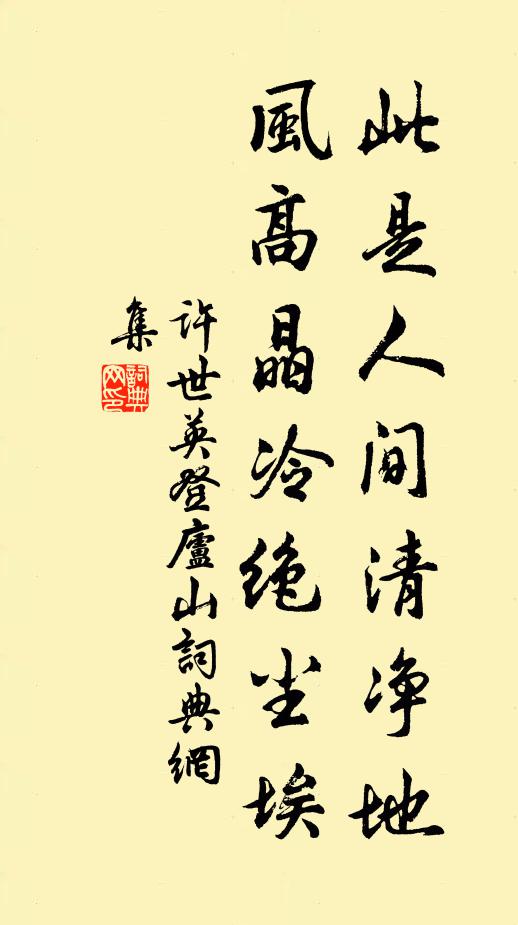 此是人间清净地
風高晶冷绝尘埃
許世英登廬山詞典網
集
詞典网印